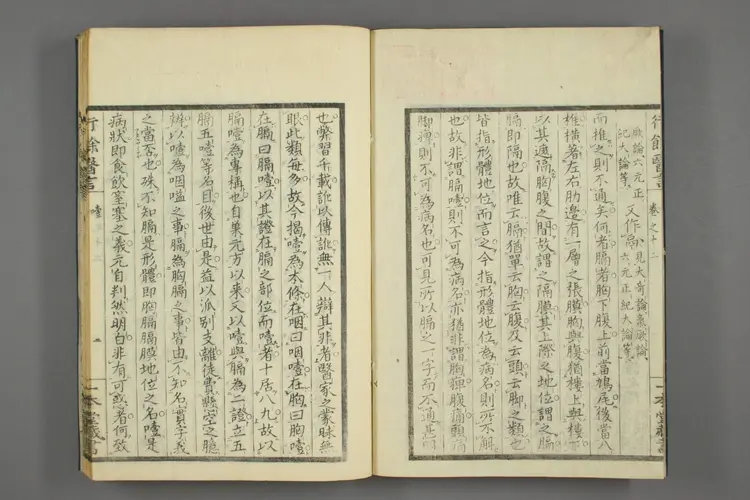 厥論六元正
紀大論等
又作鬲
見大奇論氣厥論
六元正紀大論等
而推之則不通矣何者膈者胸下腹上前當鳩尾後當八
椎橫著左右肋邊有一層之張膜胸與腹猶樓上與樓下
以其遮隔胸腹之間故謂之隔膜其上際之地位謂之膈
膈即隔也故唯云膈猶單云胸云腹及云頭云脚之類也
皆指形體地位而言之今指形體地位為病名則所不解
也故非謂膈噎則不可為病名亦猶非謂胸痺腹痛頭
脚痺則不可為病名也可見所以膈之一字而不通其
行餘醫言
卷之十二
一本堂藏書
也襲習千載訛以傳訛無一人辯其非者醫家之蒙昧無
眼此類每多故今揭噎為本條在咽曰咽噎在胸曰胸噎
在膈曰膈噎以其證在膈之部位而噎者十居八九故以
膈噎為專稱也自巢元方以來又以噎與膈為二證立五
膈五噎等名目後世由是益以派別支離徒費懸空之臆
辨以噎為咽嗌之事膈為胸膈之事皆由不知名實字義
之當否也殊不知膈是形體即胸膈膈膜地位之名噎是
病狀即食飲窒塞之義元自判然明白非有可惑者何致
行餘醫言
噎
一本堂藏書